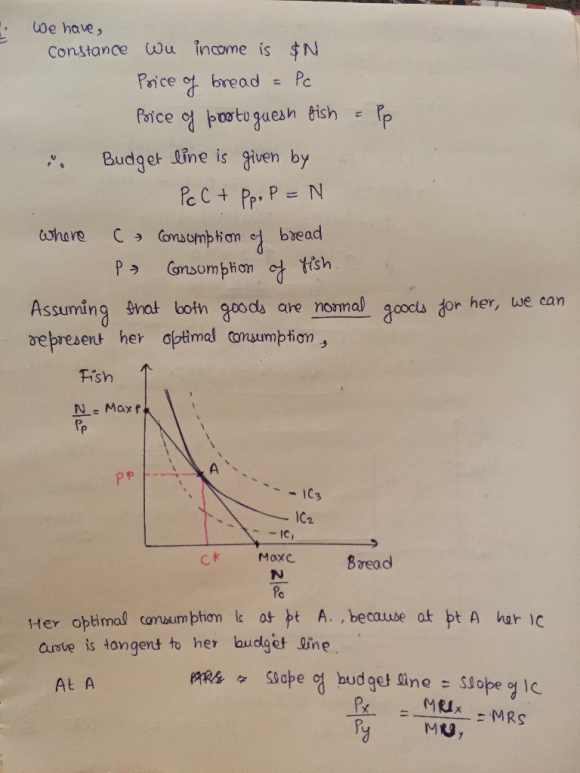 We have,
Constance Wu income is $N
Price of bread = Pc
Price of portuguesh fish = Pp
∴ Budget line is given by
Pc C + Pp. P = N
where C → Consumption of bread
P → Consumption of fish.
Assuming that both goods are normal goods for her, we can
represent her optimal consumption,
Fish
N/Pp = Max P
A
P*
IC3
IC2
IC1
C*
Max C
Bread
N/Pc
Her optimal consumption is at pt A., because at pt A her IC
curve is tangent to her budget line.
At A slope of budget line = slope of IC
Px/Py = MUx/MUy = MRS